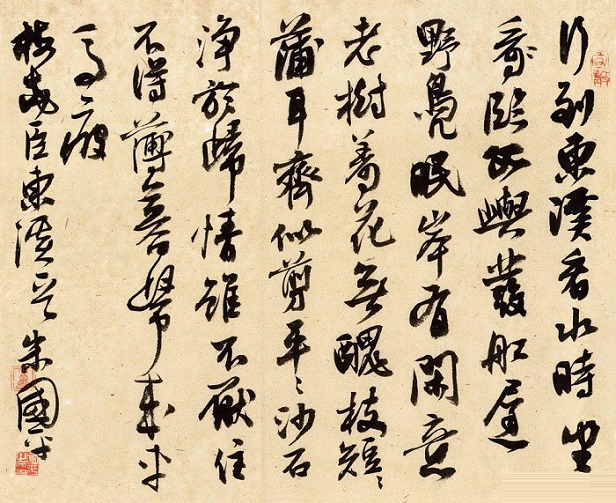 行到東溪看水時坐
臨孤嶼發舡遲
野鳧眠岸有閑意
老樹著花無醜枝短〻
蒲耳齊似剪平〻沙石
淨於篩情雖不厭住
不得薄暮歸來車
馬疲
梅堯臣東溪 朱國平